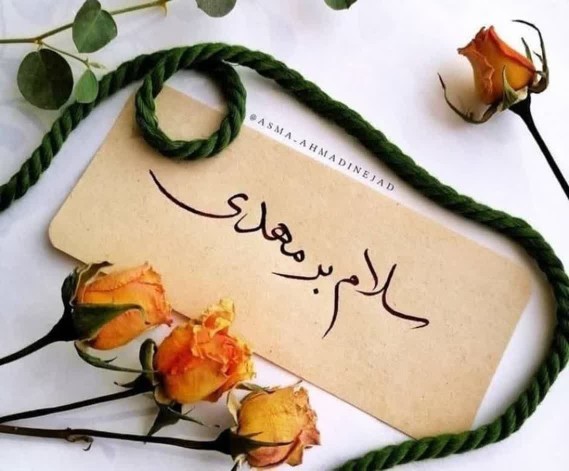 @ASMA_AHMADINEJAD
سلام بر مهدی